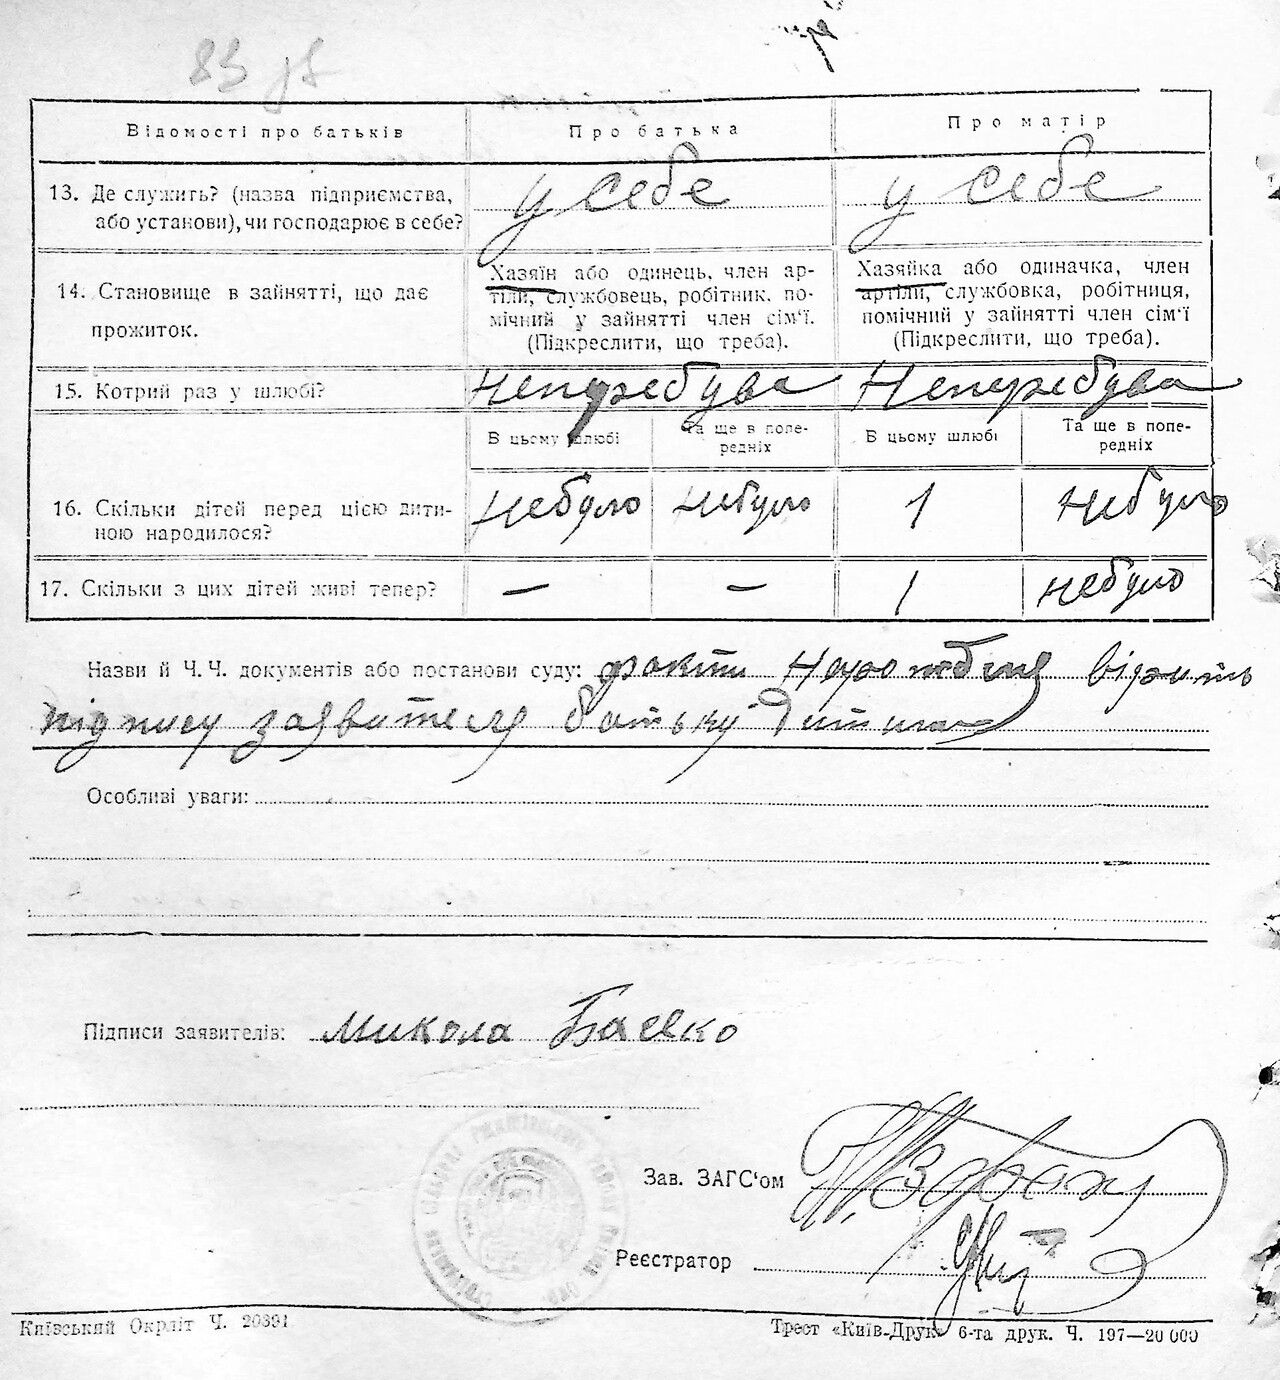 83
Відомості про батьків
Про батька
Про матір
13. Де служить? (назва підприємства,
або установи), чи господарює в себе?
у себе
у себе
14. Становище в зайнятті, що дає
прожиток.
Хазяїн або одинець, член ар-
тіли, службовець, робітник. по-
мічний у зайнятті член сім‘ї.
(Підкреслити, що треба).
Хазяйка або одиначка, член
артіли, службовка, робітниця,
помічний у зайнятті член сім‘ї
(Підкреслити, що треба).
15. Котрий раз у шлюбі?
Непуребува
Непуребува
В цьому шлюбі
Та ще в попе-
редніх
В цьому шлюбі
Та ще в попе-
редніх
16. Скільки дітей перед цією дити-
ною народилося?
небуло
небуло
1
небуло
17. Скільки з цих дітей живі тепер?
—
—
1
небуло
Назви й Ч.Ч. документів або постанови суду:
підпису заявителя батьку
Особливі уваги:
Підписи заявителів: Микола Баєвко
Зав. ЗАГС‘ом
Реєстратор
Київський Окрліт Ч. 20391
Трест «Київ-Друк» 6-та друк. Ч. 197—20 000